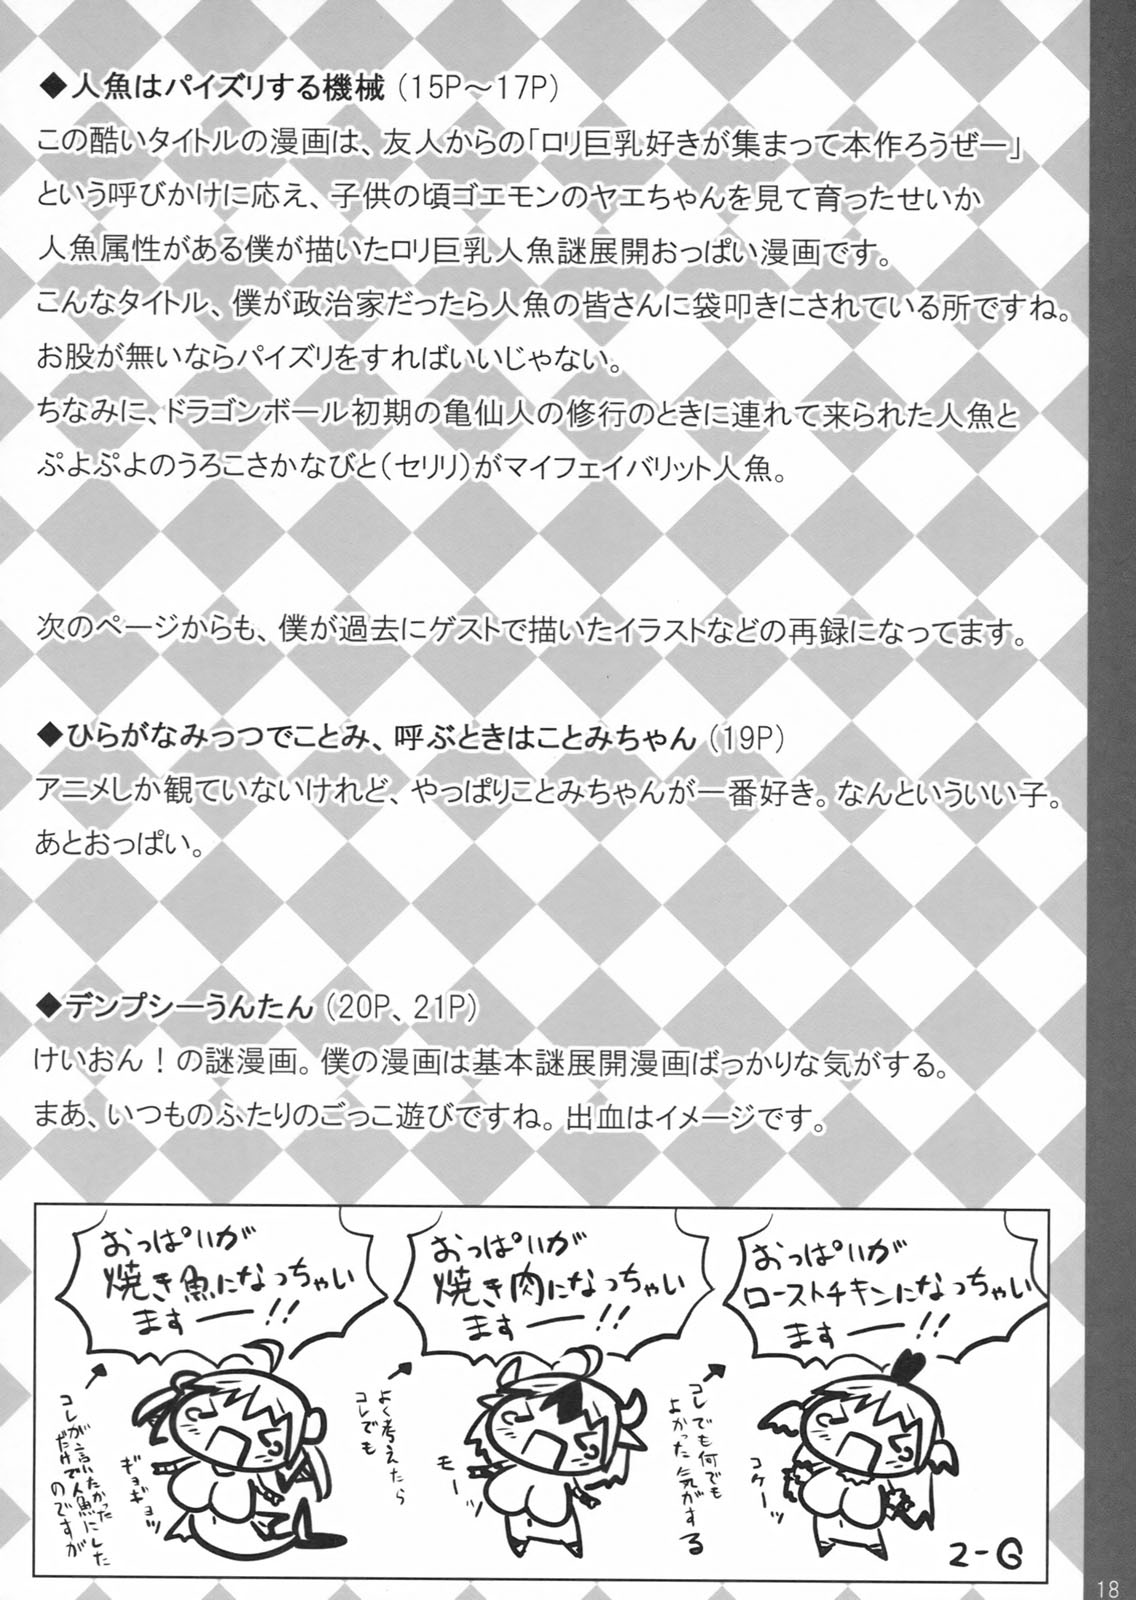 ◆人魚はパイズリする機械（15P～17P）
この酷いタイトルの漫画は、友人からの「ロリ巨乳好きが集まって本作ろうぜー」
という呼びかけに応え、子供の頃ゴエモンのヤエちゃんを見て育ったせいか
人魚属性がある僕が描いたロリ巨乳人魚謎展開おっぱい漫画です。
こんなタイトル、僕が政治家だったら人魚の皆さんに袋叩きにされている所ですね。
お股が無いならパイズリをすればいいじゃない。
ちなみに、ドラゴンボール初期の亀仙人の修行のときに連れて来られた人魚と
ぷよぷよのうろこさかなびと（セリリ）がマイフェイバリット人魚。
次のページからも、僕が過去にゲストで描いたイラストなどの再録になってます。
◆ひらがなみっつでことみ、呼ぶときはことみちゃん（19P）
アニメしか観ていないけれど、やっぱりことみちゃんが一番好き。なんといういい子。
あとおっぱい。
◆デンプシーうんたん（20P、21P）
けいおん！の謎漫画。僕の漫画は基本謎展開漫画ばっかりな気がする。
まあ、いつものふたりのごっこ遊びですね。出血はイメージです。
おっぱいが
焼き魚になっちゃい
ますー!!
コレが言いたかった
だけで人魚にした
のですが
ギョギョッ
おっぱいが
焼き肉になっちゃい
ますー!!
よく考えたら
コレでも
モーッ
おっぱいが
ローストチキンになっちゃい
ますー!!
コレでも何でも
よかった気がする
コケーッ
2-G
18